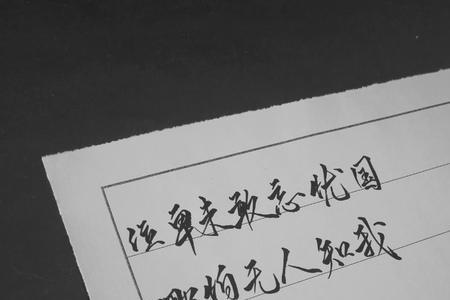 位卑未敢忘忧国
哪怕无人知我